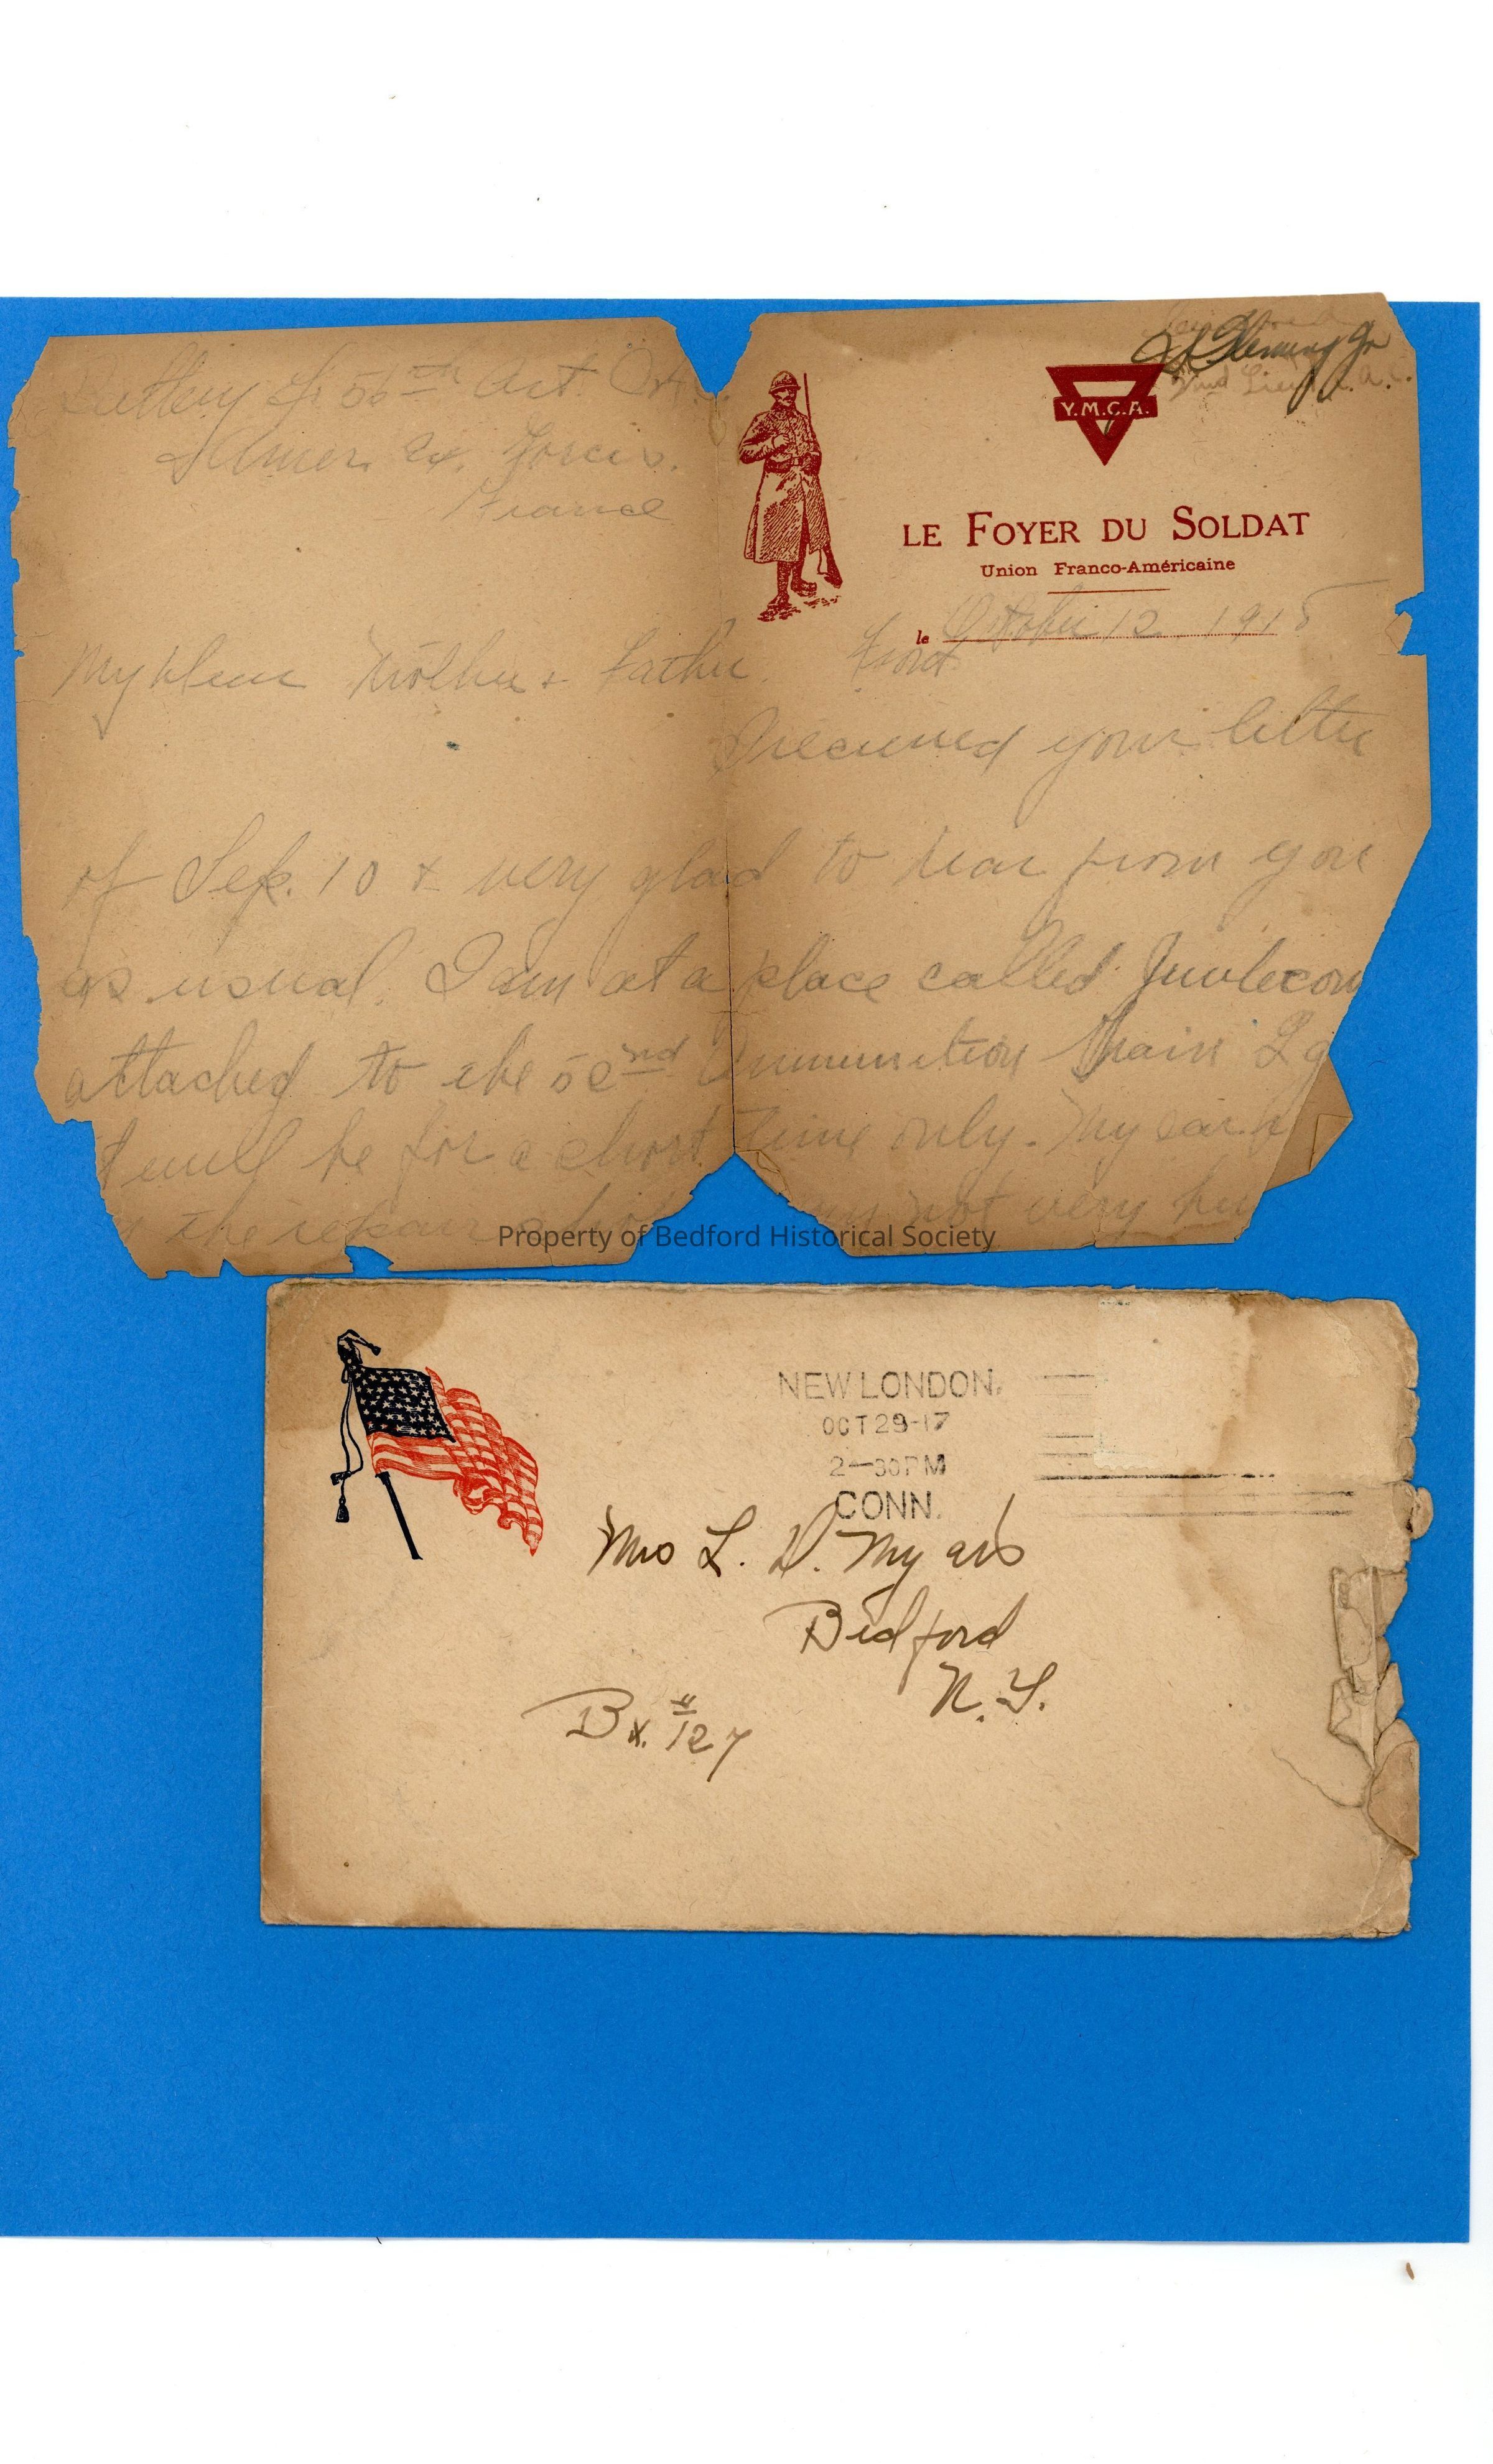 56th Art.
Amer. Ex. Forces.
France
Fleming Jr
2nd Lieut.
Y.M.C.A.
LE FOYER DU SOLDAT
Union Franco-Américaine
le October 12, 1918
My Dear Mother + Father.
I received your letter
of Sep. 10 + very glad to hear from you
as usual. I am at a place called
attached to the 52nd Ammunition Train
will be for a short time only. My
the repair not very
Property of Bedford Historical Society
NEW LONDON.
OCT 29-17
2-30PM
CONN.
Mrs L. D. Myars
Bedford
N.Y.
Bx. #127